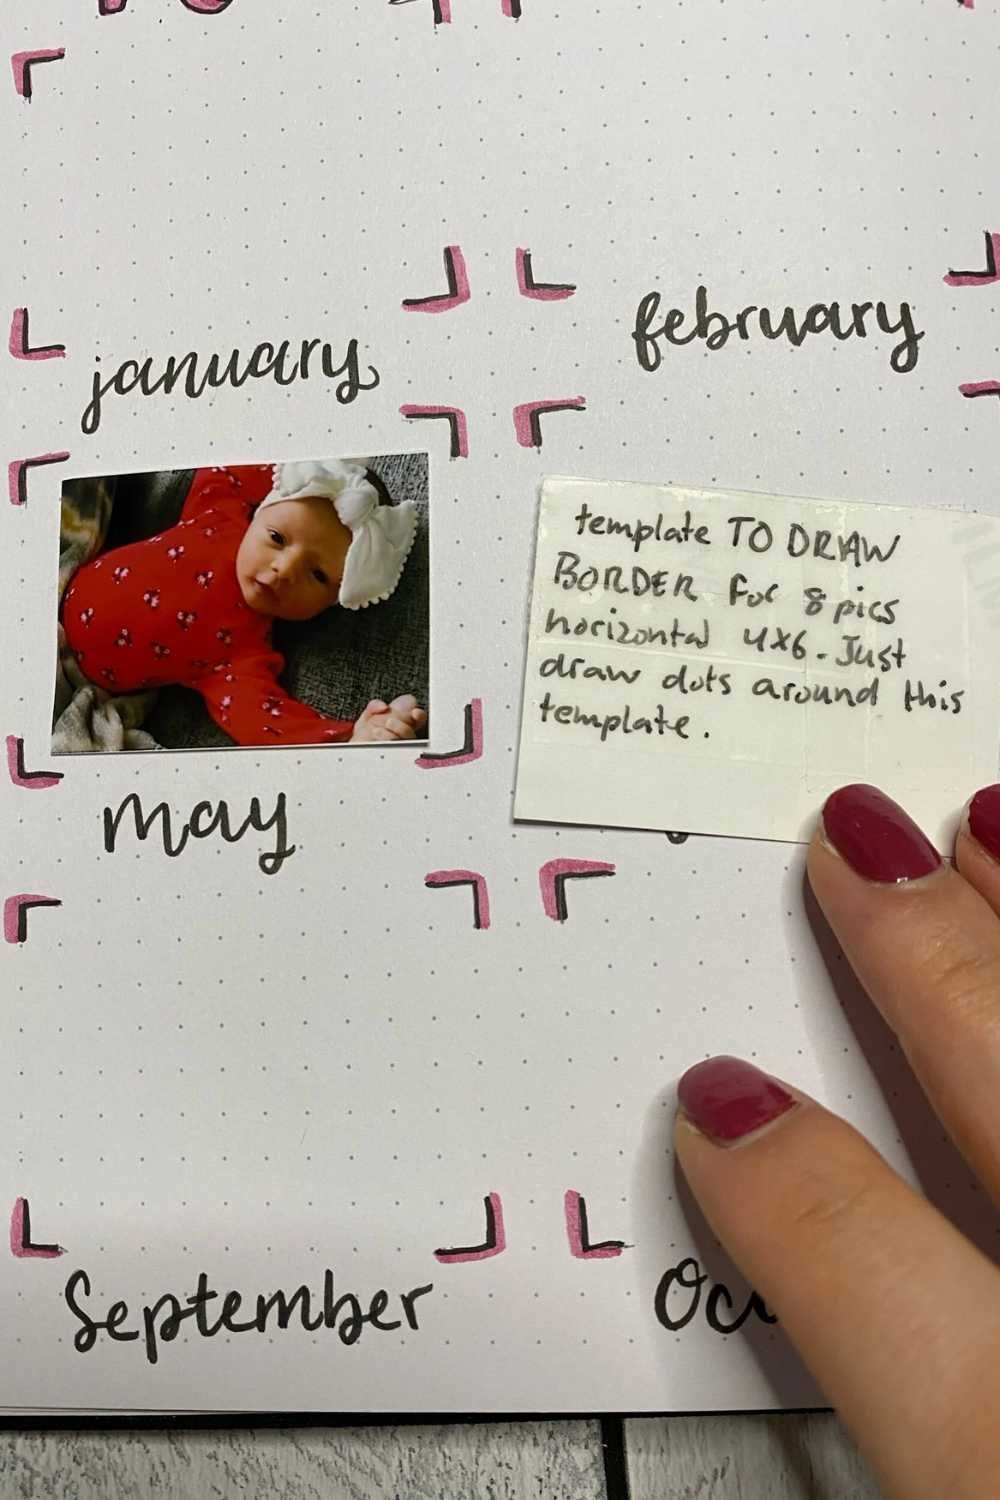 january
february
template TO DRAW
BORDER for 8 pics
horizontal 4x6. Just
draw dots around this
template.
may
September